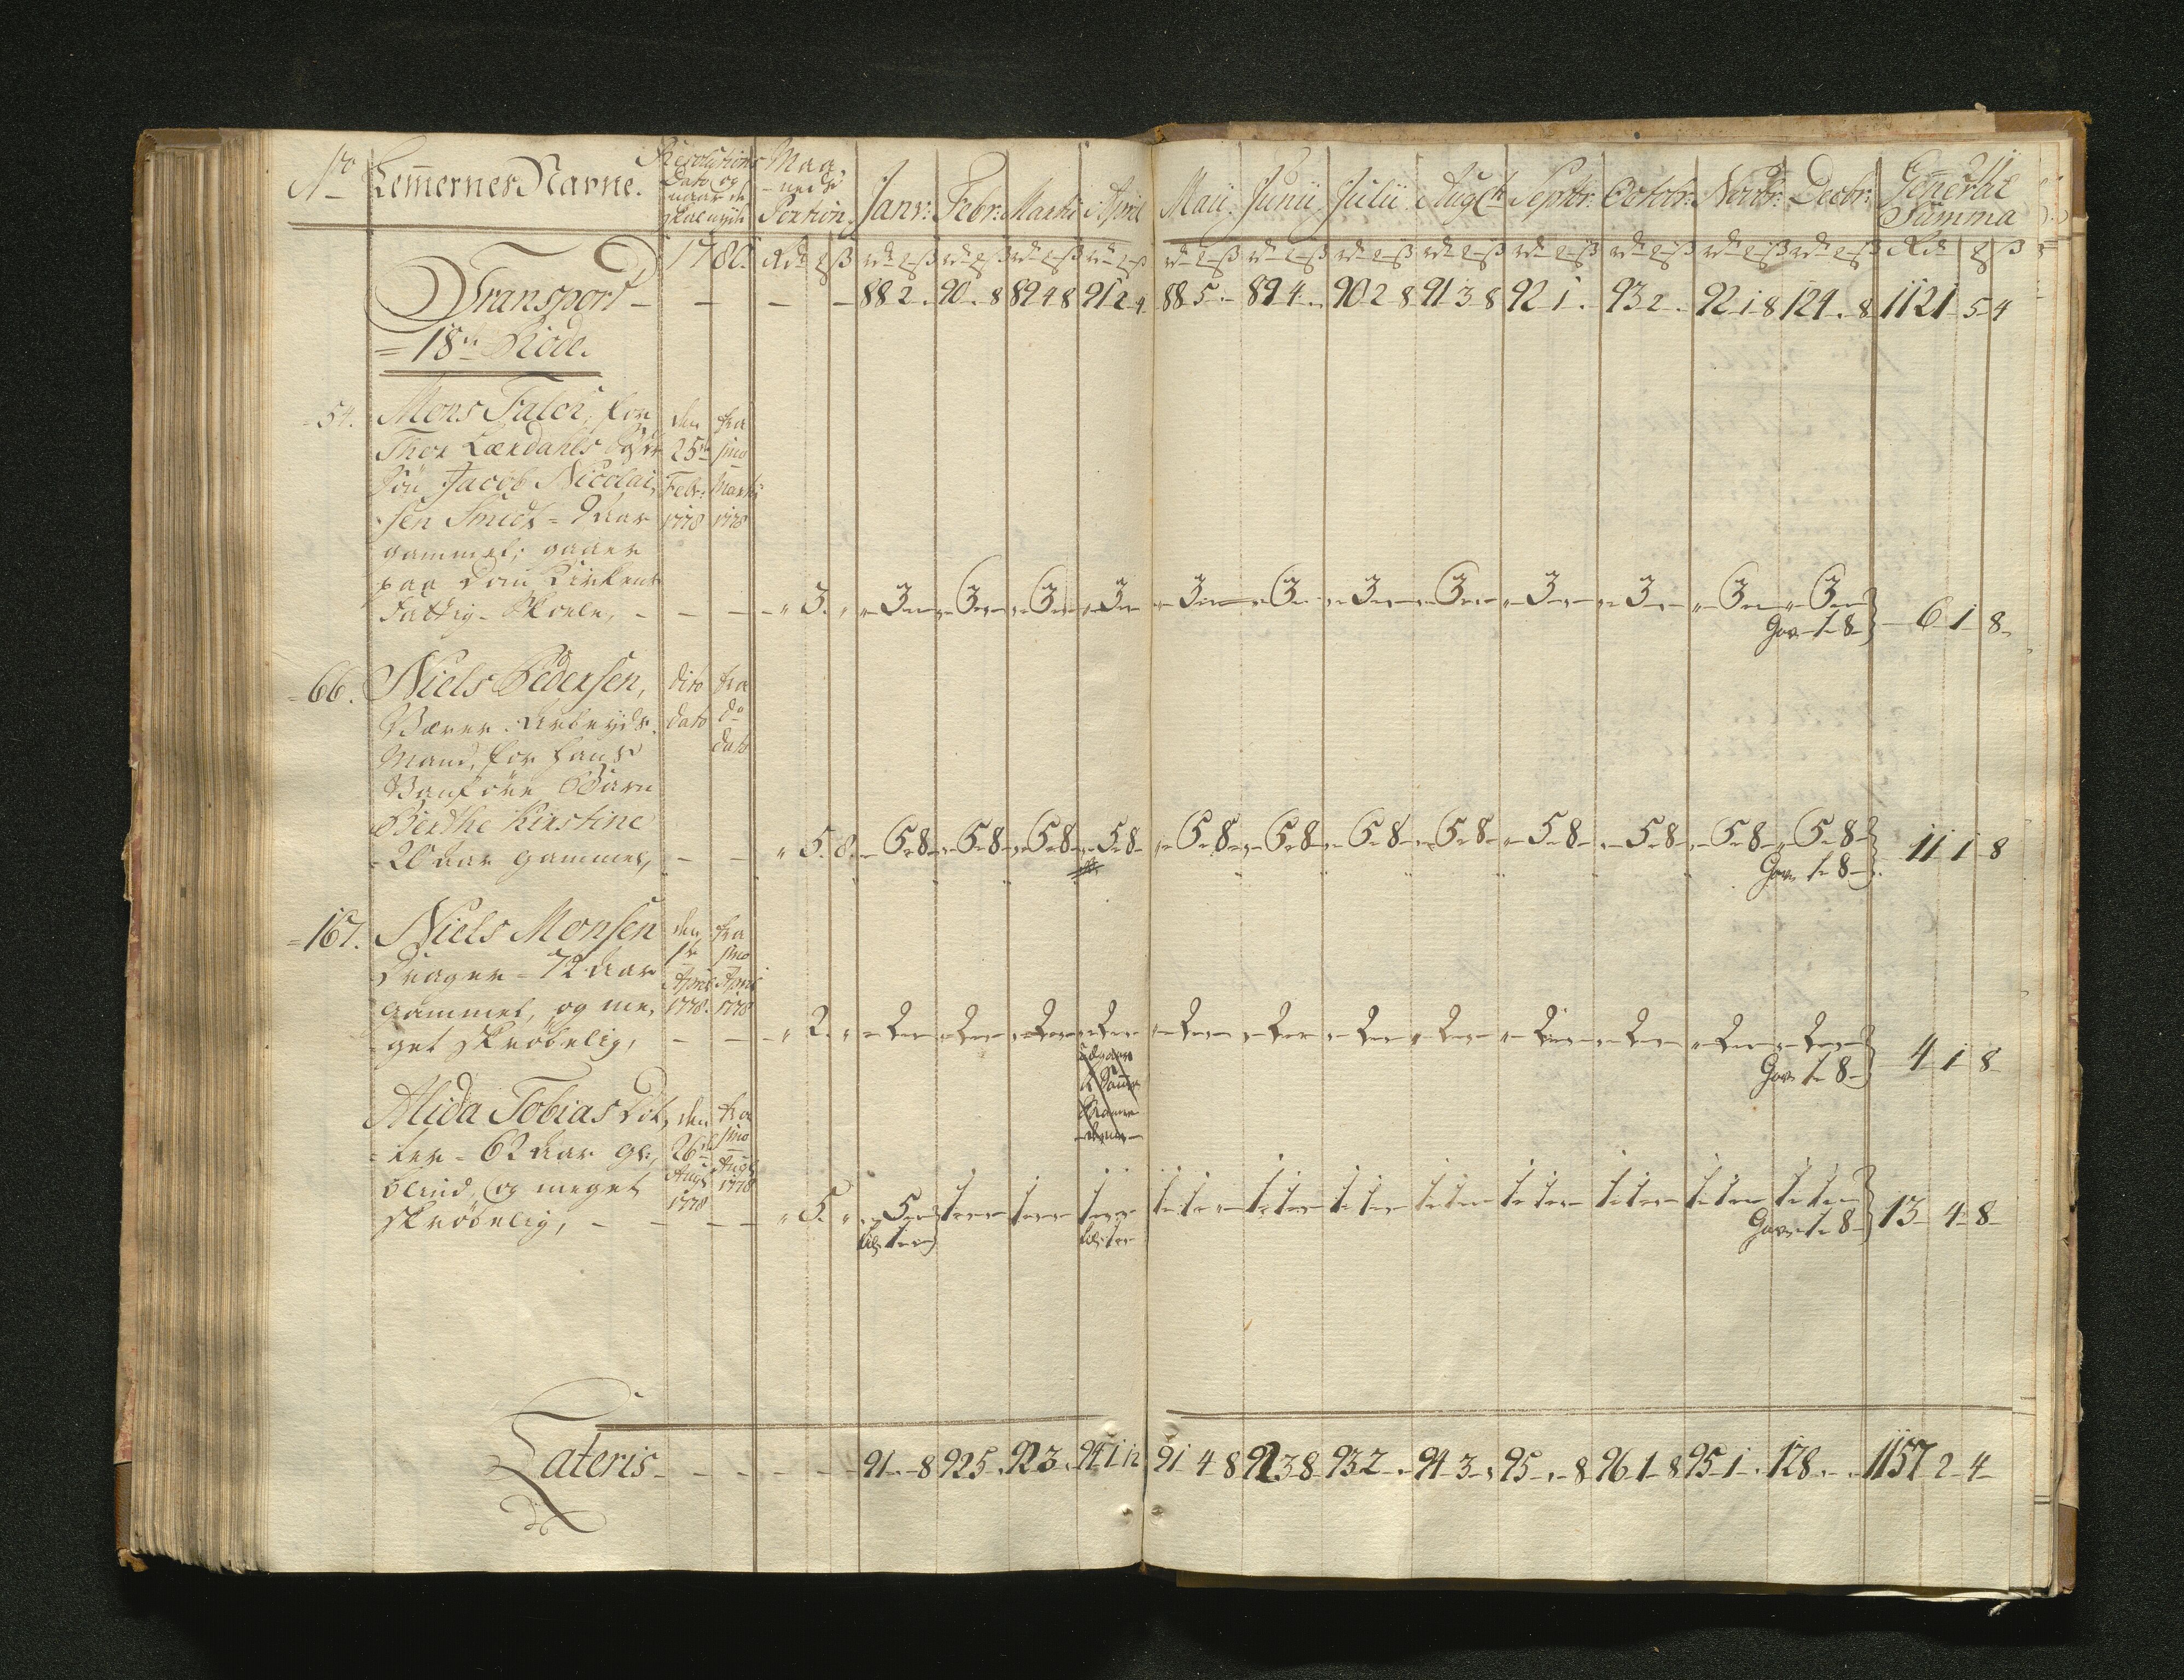 No Lem̄ernes Navne. Resolutions Dato og naar de skal nyde Maanede Portion Janr: Febr: Martii April Maii Junii Julii Augst Septbr: Octobr: Novbr: Decbr: General Summa
1780. Rdr ß
Transport - - - - 88 2 . 90 . 8 89 4 8 91 2 4 88 5 . 89 4 . 90 2 8 91 3 8 92 1 . 93 2 . 92 1 8 124 . 8 1121 5 4
18de Rode.
54. Mons Falch, for den fra
Thor Lærdahls 25de pmo
Jacob Nicolai, Febr: Martii
sen Smidt = 9 aar 1778 1778
gammel; gaaer
paa Dom Kirkens
Fattig-Skoele, - - - 3. 3 3 3 3 3 3 3 3 3 3 3 3
Gave 1 8 6 1 8
66. Niels Pedersen, dito fra
dato do
Mand, for hans dato
Vanføre Barn
Berthe Kirstine
20 aar gammel, - - 5. 8. 5 8 5 8 5 8 5 8 5 8 5 8 5 8 5 8 5 8 5 8 5 8 5 8
Gave 1 8 11 1 8
167. Niels Monsen den fra
Drager = 72 aar 1te pmo
April April
gammel, og me, 1778. 1778
get skrøbelig, - - 2. 2 2 2 2 2 2 2 2 2 2 2 2
Gave 1 8 4 1 8
Alida Tobias Dot, den fra
ter = 62 aar gl:, 26de pmo
Augs Augs
blind, og meget 1778 1778
skrøbelig, - - - 5. 5 1 1 1 1 1 1 1 1 1 1 1 1 1 1 1 1 1 1 1
Gave 1 8 13 4 8
Lateris - - - - - 91 . 8 92 5 . 92 3 . 94 1 12 91 4 8 92 3 8 93 2 . 94 3 . 95 . 8 96 1 8 95 1 . 128 . . 1157 2 4